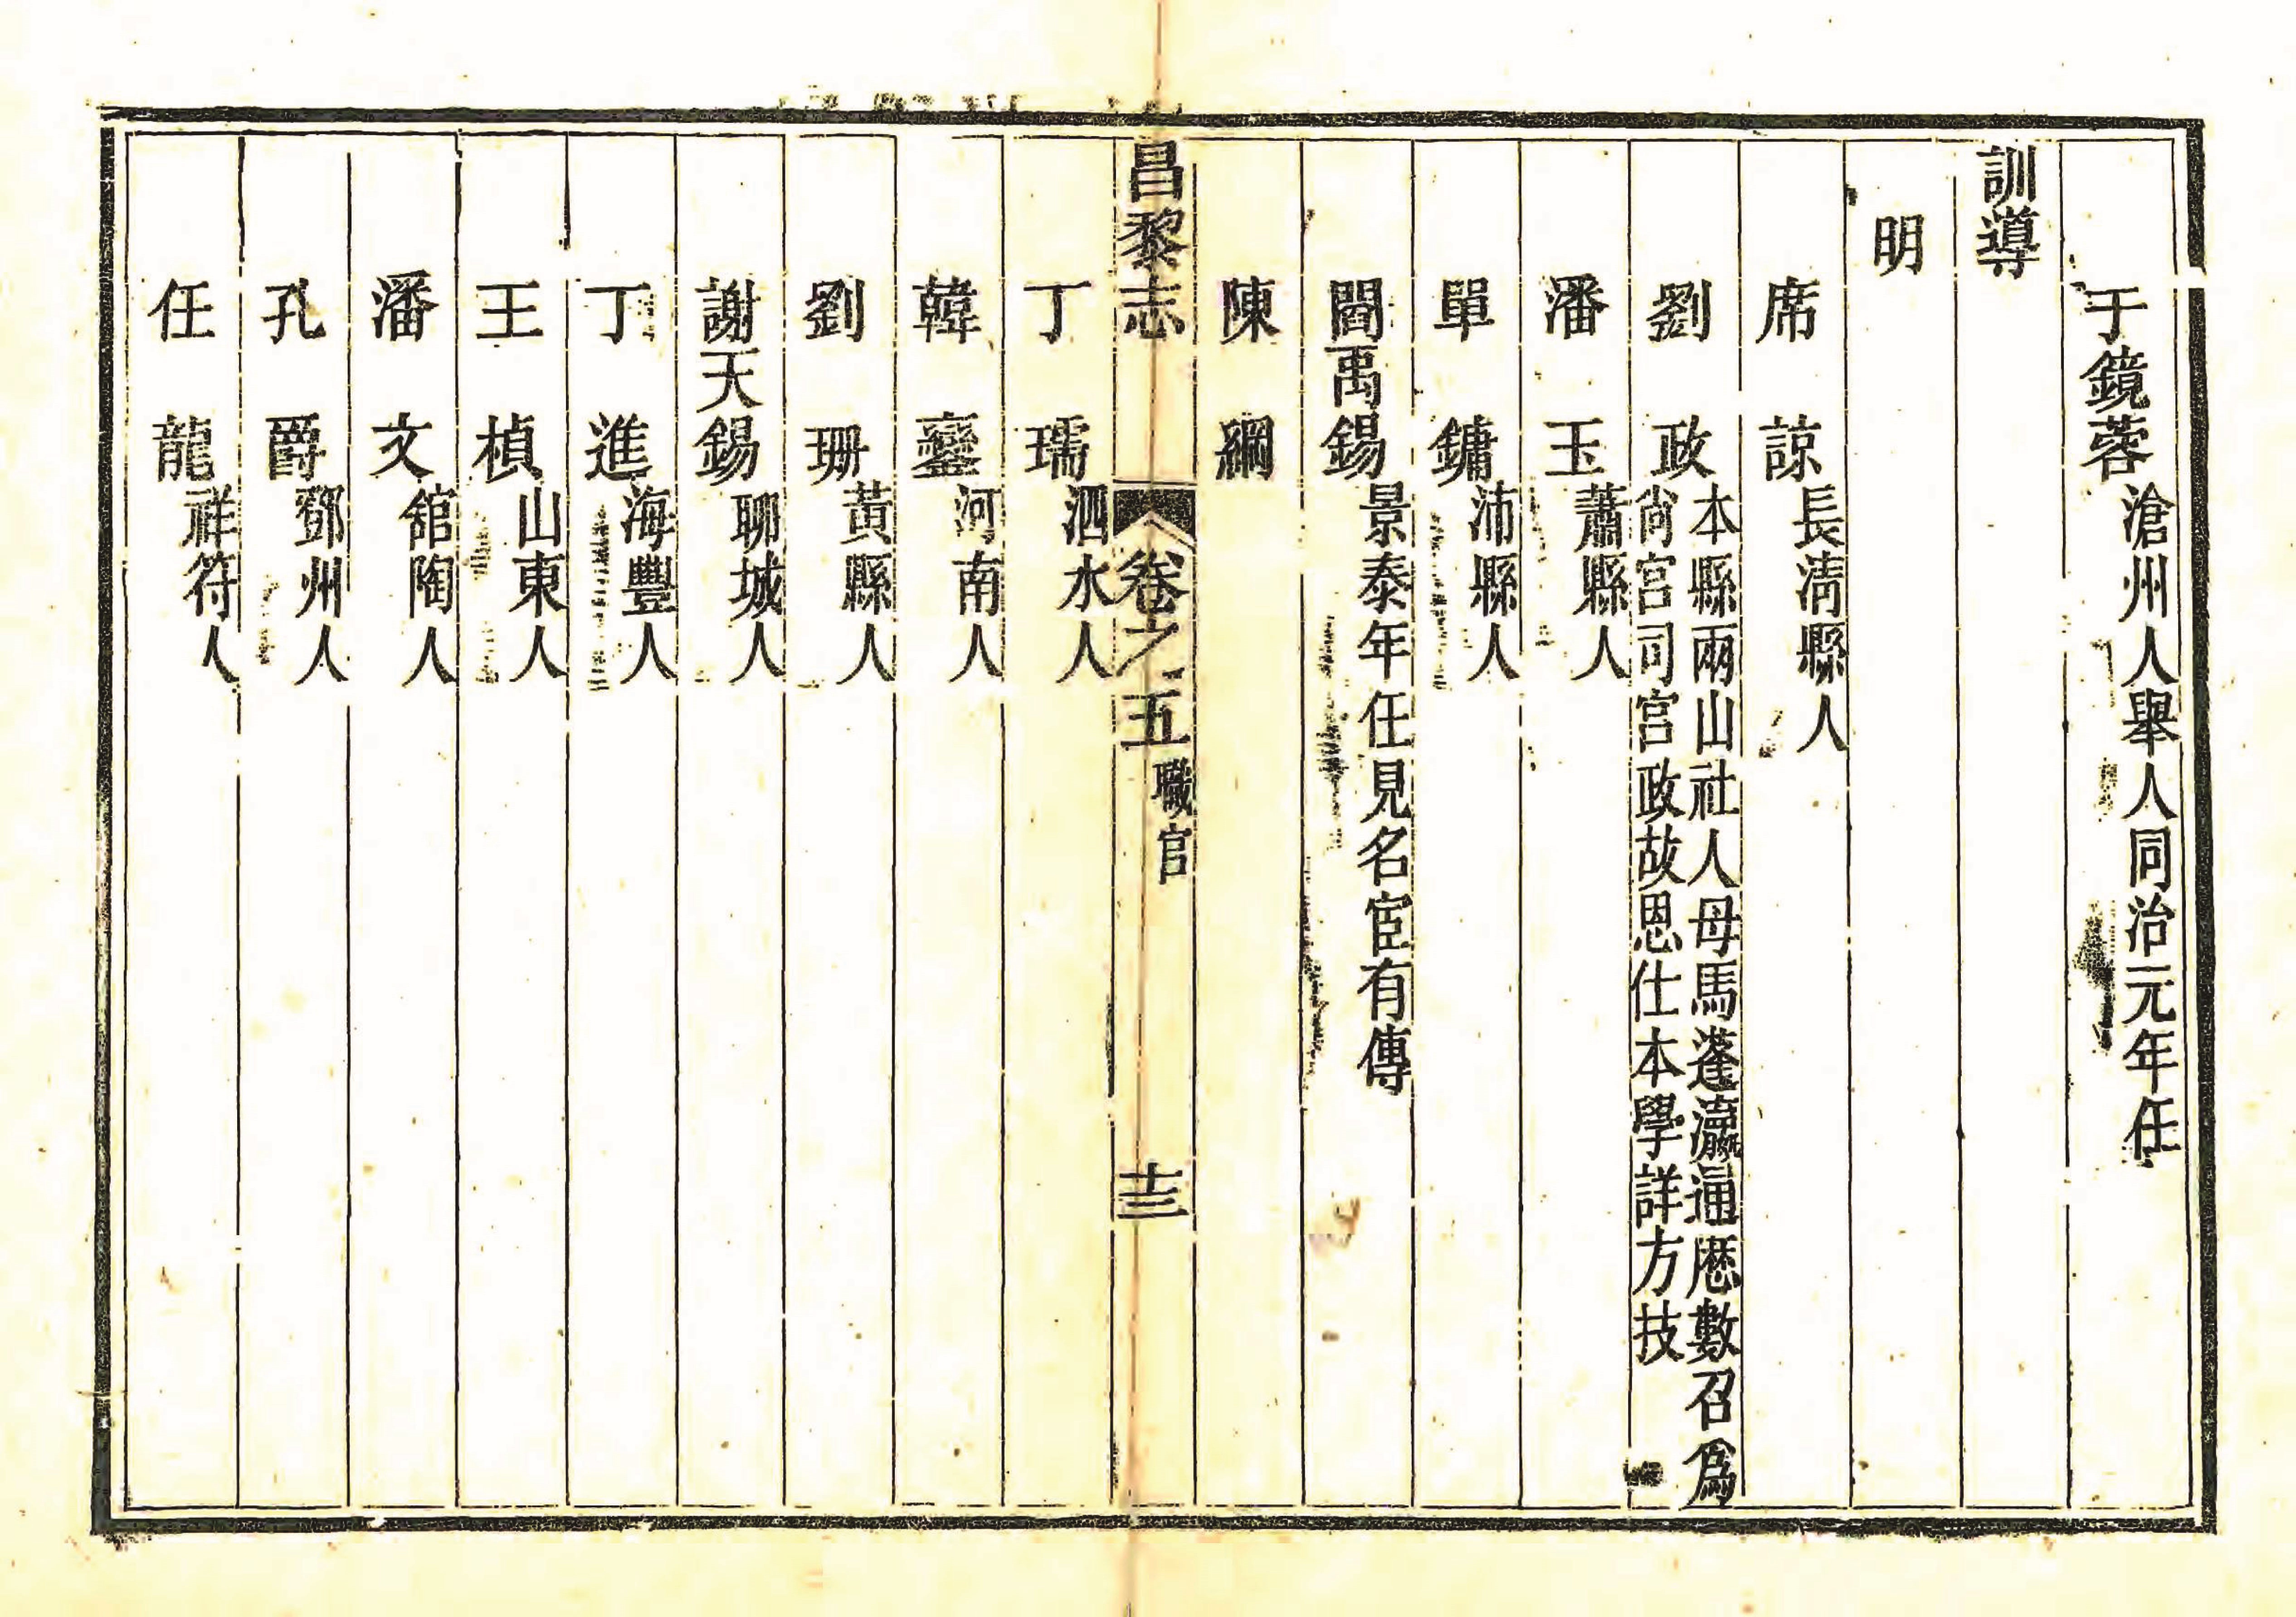 于鏡蓉滄州人舉人同治元年任
訓導
明
席諒長淸縣人
劉政本縣兩山社人母馬蓬瀛通厯數召爲
尙宮司宮政故恩仕本學詳方技
潘玉蕭縣人
單鏞沛縣人
閻禹錫景泰年任見名宦有傳
陳綱
昌黎志 卷之五 職官 十三
丁瑀泗水人
韓鑾河南人
劉珊黃縣人
謝天錫聊城人
丁進海豐人
王楨山東人
潘文舘陶人
孔爵鄧州人
任龍祥符人